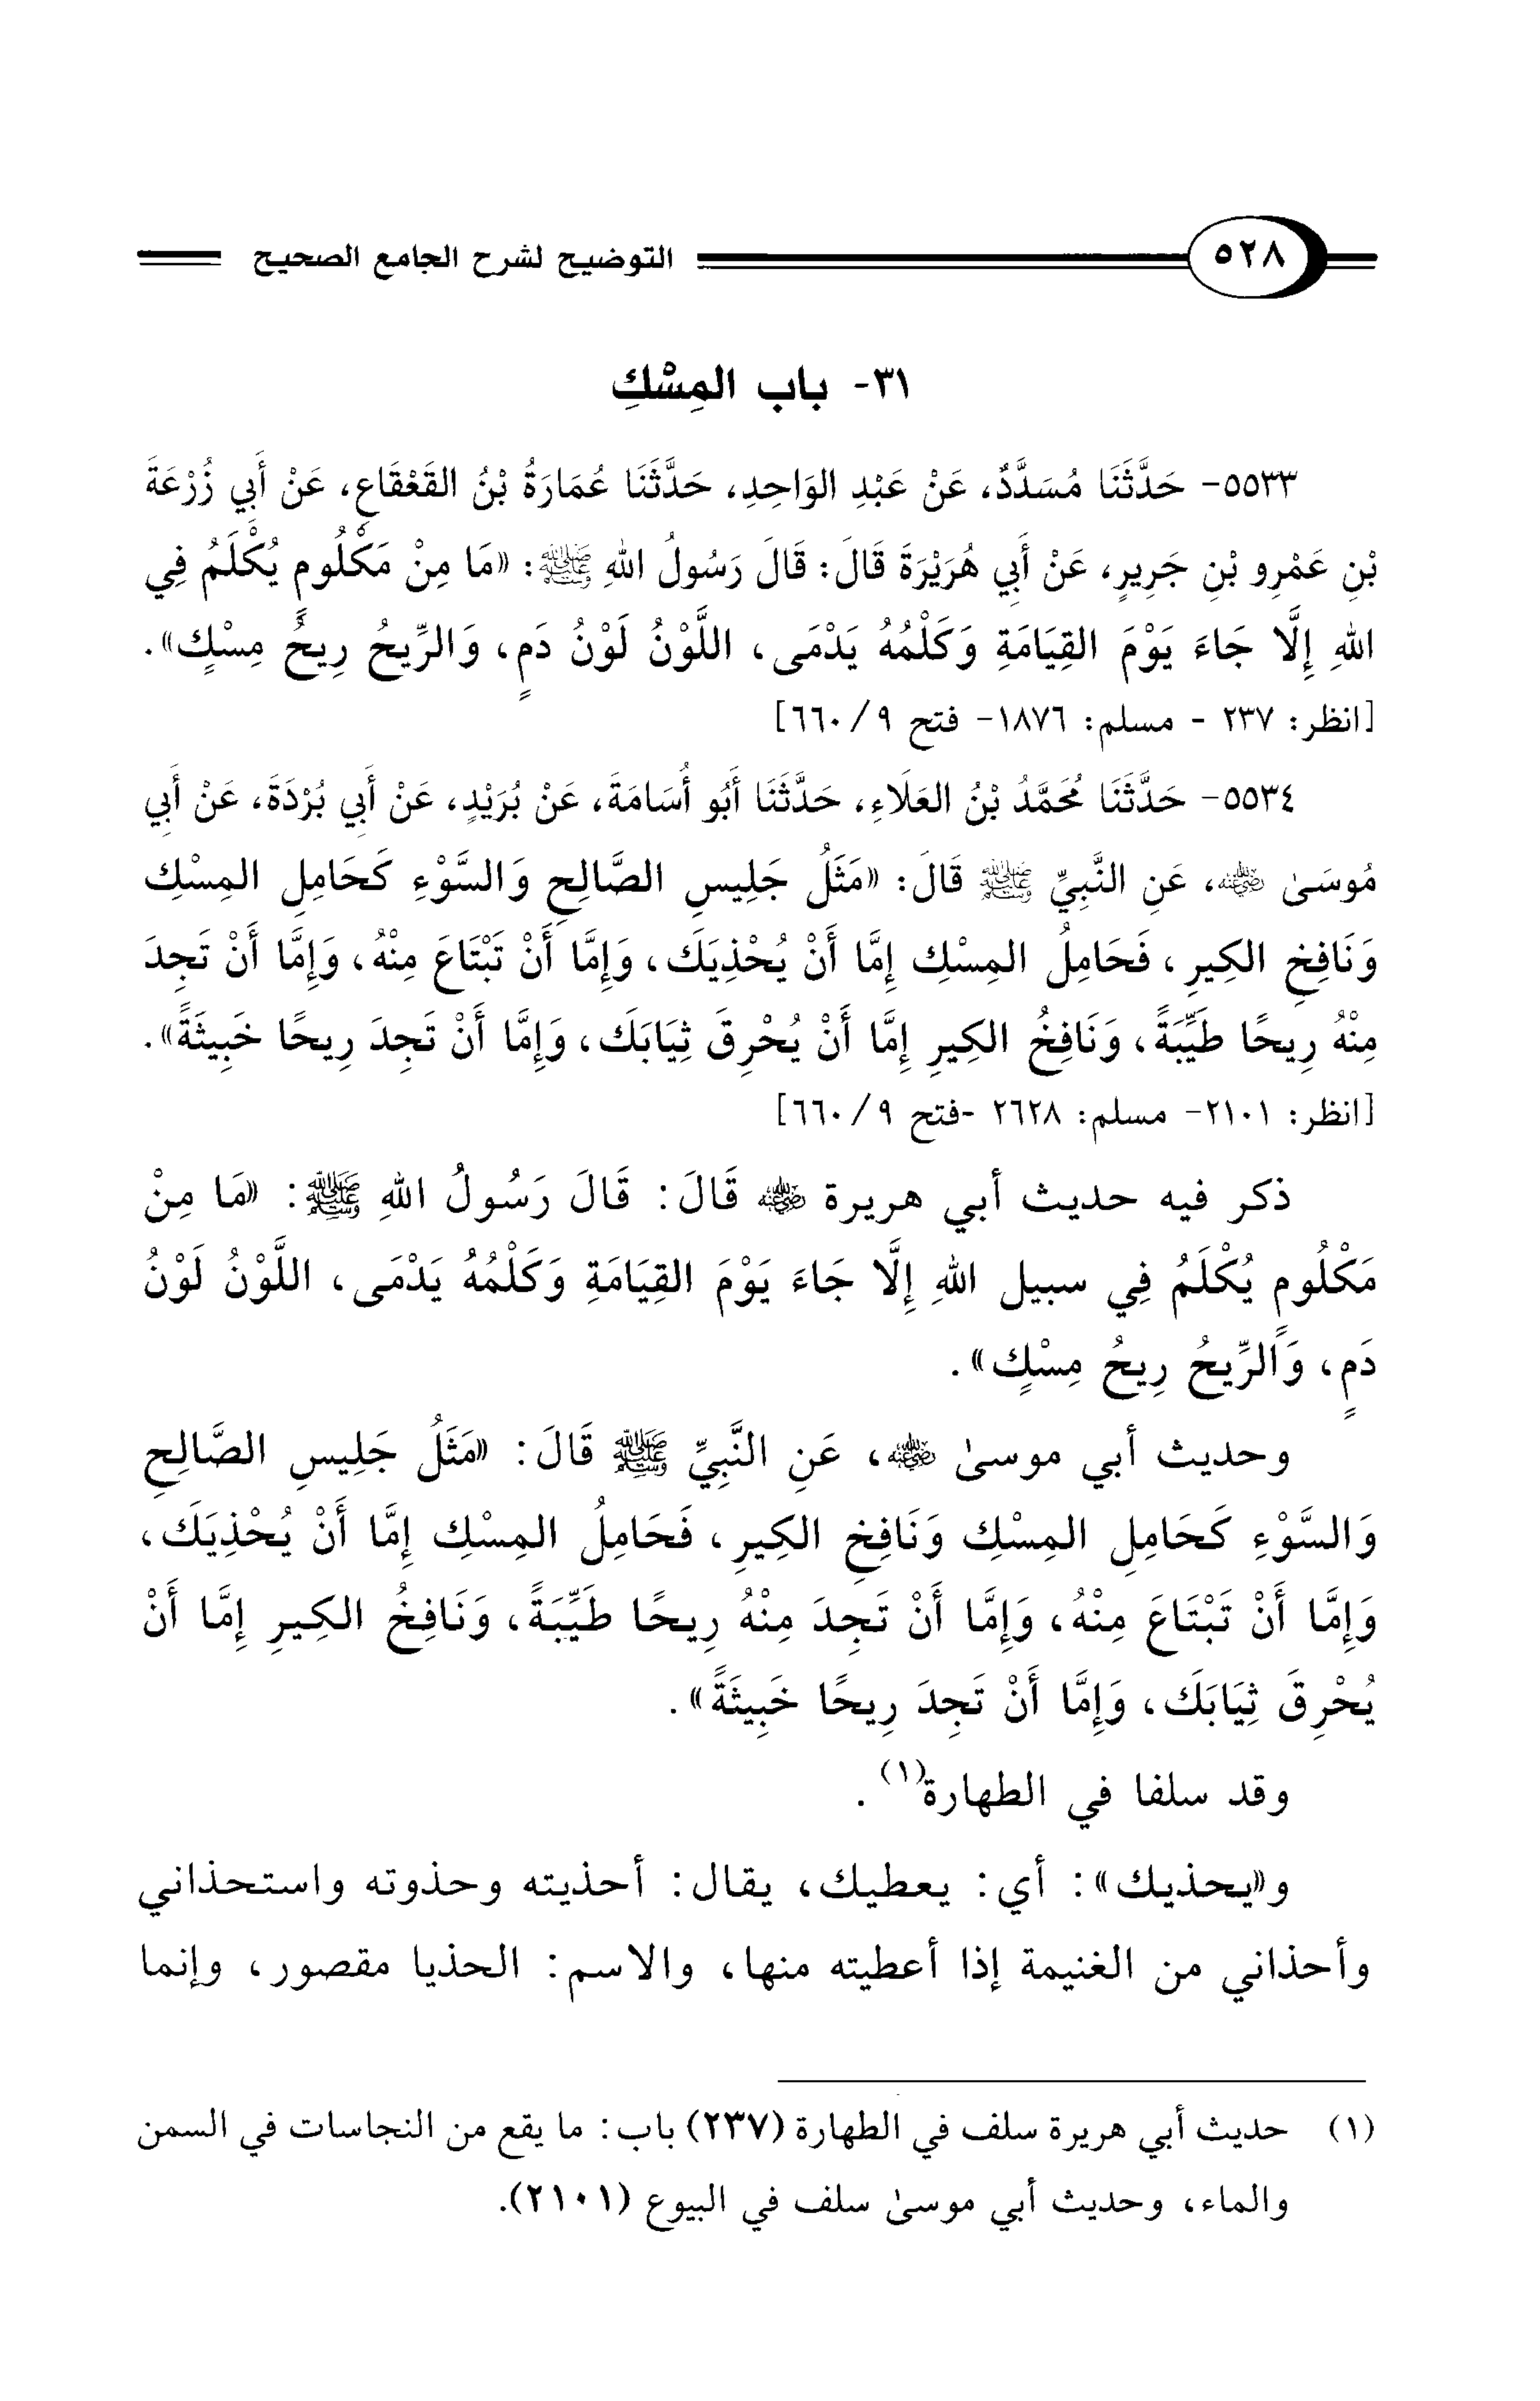 ٥٢٨ التوضيح لشرح الجامع الصحيح
٣١- باب المِسْكِ
٥٥٣٣- حَدَّثَنَا مُسَدَّدٌ، عَنْ عَبْدِ الوَاحِدِ، حَدَّثَنَا عُمَارَةُ بْنُ القَعْقَاعِ، عَنْ أَبِي زُرْعَةَ
بْنِ عَمْرِو بْنِ جَرِيرٍ، عَنْ أَبِي هُرَيْرَةَ قَالَ: قَالَ رَسُولُ اللهِ ﷺ: «مَا مِنْ مَكْلُومٍ يُكْلَمُ فِي
اللهِ إِلَّا جَاءَ يَوْمَ القِيَامَةِ وَكَلْمُهُ يَدْمَى، اللَّوْنُ لَوْنُ دَمٍ، وَالرِّيحُ رِيحُ مِسْكٍ».
[انظر: ٢٣٧ - مسلم: ١٨٧٦- فتح ٩/ ٦٦٠]
٥٥٣٤- حَدَّثَنَا مُحَمَّدُ بْنُ العَلَاءِ، حَدَّثَنَا أَبُو أُسَامَةَ، عَنْ بُرَيْدٍ، عَنْ أَبِي بُرْدَةَ، عَنْ أَبِي
مُوسَىٰ ﵁، عَنِ النَّبِيِّ ﷺ قَالَ: «مَثَلُ جَلِيسِ الصَّالِحِ وَالسَّوْءِ كَحَامِلِ المِسْكِ
وَنَافِخِ الكِيرِ، فَحَامِلُ المِسْكِ إِمَّا أَنْ يُحْذِيَكَ، وَإِمَّا أَنْ تَبْتَاعَ مِنْهُ، وَإِمَّا أَنْ تَجِدَ
مِنْهُ رِيحًا طَيِّبَةً، وَنَافِخُ الكِيرِ إِمَّا أَنْ يُحْرِقَ ثِيَابَكَ، وَإِمَّا أَنْ تَجِدَ رِيحًا خَبِيثَةً».
[انظر: ٢١٠١- مسلم: ٢٦٢٨ -فتح ٩/ ٦٦٠]
ذكر فيه حديث أبي هريرة ﵁ قَالَ: قَالَ رَسُولُ اللهِ ﷺ: «مَا مِنْ
مَكْلُومٍ يُكْلَمُ فِي سبيل اللهِ إِلَّا جَاءَ يَوْمَ القِيَامَةِ وَكَلْمُهُ يَدْمَى، اللَّوْنُ لَوْنُ
دَمٍ، وَالرِّيحُ رِيحُ مِسْكٍ».
وحديث أبي موسىٰ ﵁، عَنِ النَّبِيِّ ﷺ قَالَ: «مَثَلُ جَلِيسِ الصَّالِحِ
وَالسَّوْءِ كَحَامِلِ المِسْكِ وَنَافِخِ الكِيرِ، فَحَامِلُ المِسْكِ إِمَّا أَنْ يُحْذِيَكَ،
وَإِمَّا أَنْ تَبْتَاعَ مِنْهُ، وَإِمَّا أَنْ تَجِدَ مِنْهُ رِيحًا طَيِّبَةً، وَنَافِخُ الكِيرِ إِمَّا أَنْ
يُحْرِقَ ثِيَابَكَ، وَإِمَّا أَنْ تَجِدَ رِيحًا خَبِيثَةً».
وقد سلفا في الطهارة(١).
و«يحذيك»: أي: يعطيك، يقال: أحذيته وحذوته واستحذاني
وأحذاني من الغنيمة إذا أعطيته منها، والاسم: الحذيا مقصور، وإنما
(١) حديث أبي هريرة سلف في الطهارة (٢٣٧) باب: ما يقع من النجاسات في السمن
والماء، وحديث أبي موسىٰ سلف في البيوع (٢١٠١).